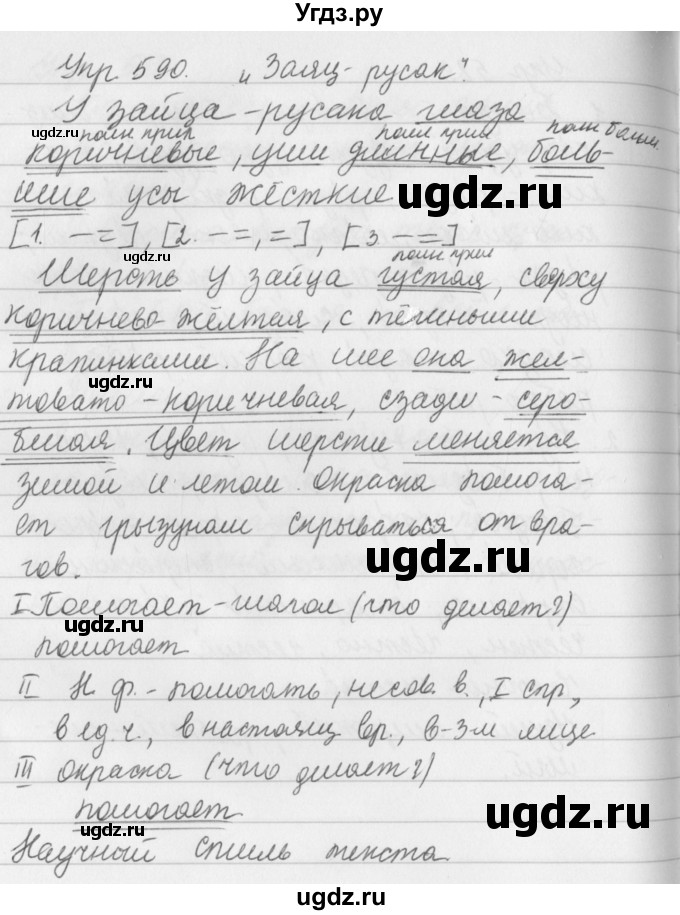 Угдз.ру
Упр 590. „Заяц-русак“.
У зайца-русака глаза
полн прил полн прил полн прил
коричневые, уши длинные, боль-
шие усы жёсткие
[1. -=], [2. -=,=], [3 -=]
полн прил
Шерсть у зайца густая, сверху
коричнево жёлтая, с тёмными
крапинками. На шее она жел-
товато-коричневая, сзади - серо-
белая. Цвет шерсти меняется
зимой и летом. Окраска помога-
ет грызунам скрываться от вра-
гов.
I Помогает-глагол (что делает?)
помогает
II Н. ф. - помогать, несов. в., I спр,
в ед. ч., в настоящ вр., в-3-м лице
III окраска (что делает?)
помогает
Научный стиль текста
ugdz.ru
ugdz.ru
ugdz.ru
ugdz.ru
ugdz.ru
ugdz.ru
ugdz.ru
ugdz.ru
ugdz.ru
ugdz.ru